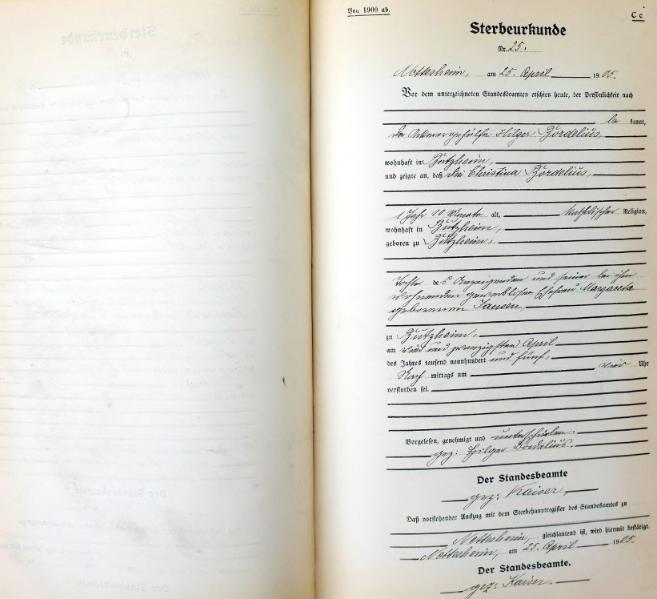 Von 1900 ab.
C c
Sterbeurkunde
Nr. 25.
Nettesheim, am 25. April 1905.
Vor dem unterzeichneten Standesbeamten erschien heute, der Persönlichkeit nach
be kannt,
der Ackergehülfe Hilger Bördelius
wohnhaft in Butzheim,
und zeigte an, daß die Christina Bördelius,
1 Jahr 10 Monate alt, katholischer Religion,
wohnhaft in Butzheim,
geboren zu Butzheim,
Tochter des Anzeigenden und seiner bei ihm
wohnenden gewerblosen Ehefrau Margareta
geborenen Jansen,
zu Butzheim,
am vier und zwanzigsten April
des Jahres tausend neunhundert und fünf
Nach mittags um vier Uhr
verstorben sei.
Vorgelesen, genehmigt und unterschrieben
gez: Hilger Bördelius.
Der Standesbeamte
gez: Kaiser.
Daß vorstehender Auszug mit dem Sterbehauptregister des Standesamtes zu
Nettesheim, gleichlautend ist, wird hiermit bestätigt.
Nettesheim, am 25. April 1905.
Der Standesbeamte.
gez: Kaiser.